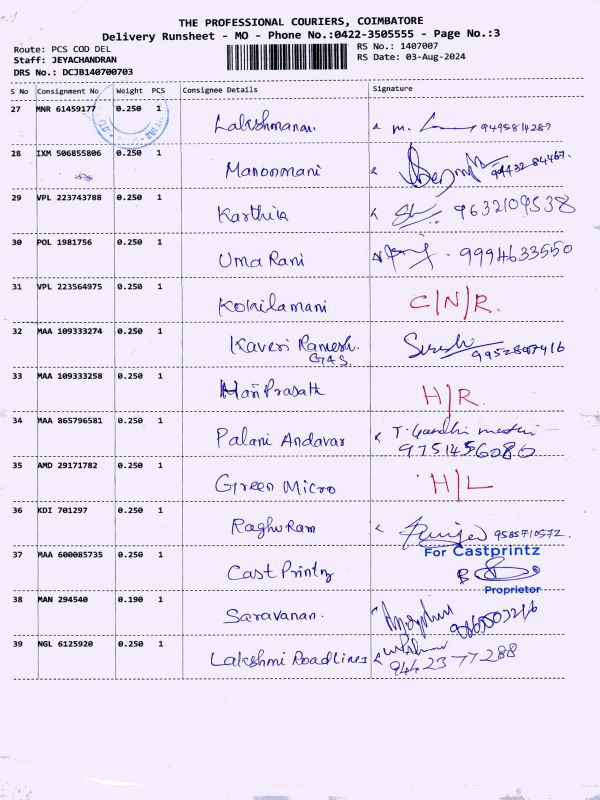 THE PROFESSIONAL COURIERS, COIMBATORE
Delivery Runsheet - MO - Phone No.:0422-3505555 - Page No.:3
Route: PCS COD DEL RS No.: 1407007
Staff: JEYACHANDRAN RS Date: 03-Aug-2024
DRS No.: DCJB140700703
S No Consignment No Weight PCS Consignee Details Signature
27 MNR 61459177 0.250 1 Lakshmanan. m.
28 IXM 506855806 0.250 1 Manonmani
29 VPL 223743788 0.250 1 Karthika 9632109538
30 POL 1981756 0.250 1 Uma Rani 9994633550
31 VPL 223564975 0.250 1 Kokilamani C/N/R.
32 MAA 109333274 0.250 1 Kaveri Ramesh. Suresh
GAS.
33 MAA 109333258 0.250 1 Hari Prasath H/R.
34 MAA 865796581 0.250 1 Palani Andavar T. Gandhi mathi
9751456080
35 AMD 29171782 0.250 1 Green Micro H/L
36 KDI 701297 0.250 1 Raghu Ram 9585710572.
37 MAA 600085735 0.250 1 Cast Printz For Castprintz
Proprietor
38 MAN 294540 0.190 1 Saravanan.
39 NGL 6125920 0.250 1 Lakshmi RoadLines
94423 77288